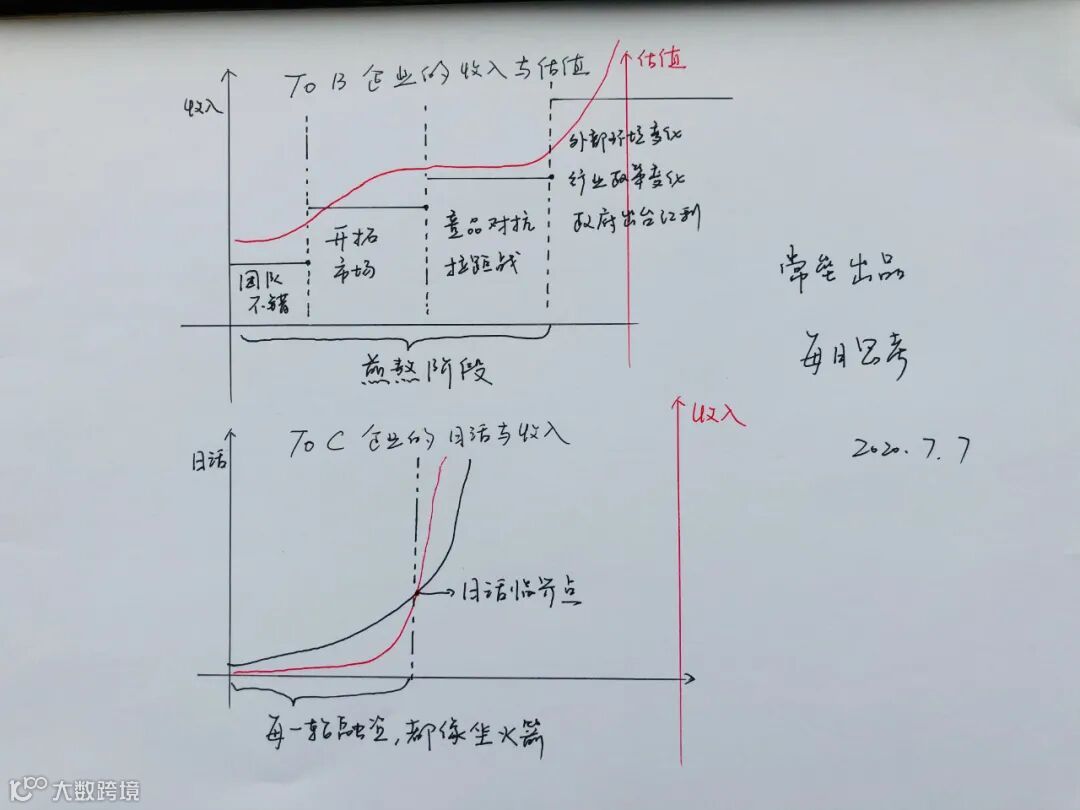 To B 企业的收入与估值
收入
估值
团队
不错
开拓
市场
竞品对抗
拉距战
外部环境变化
行业政策变化
政府出台红利
煎熬阶段
常垒出品
每日思考
2020.7.7
To C 企业的日活与收入
日活
收入
日活临界点
每一轮融资,都像坐火箭
大数跨境